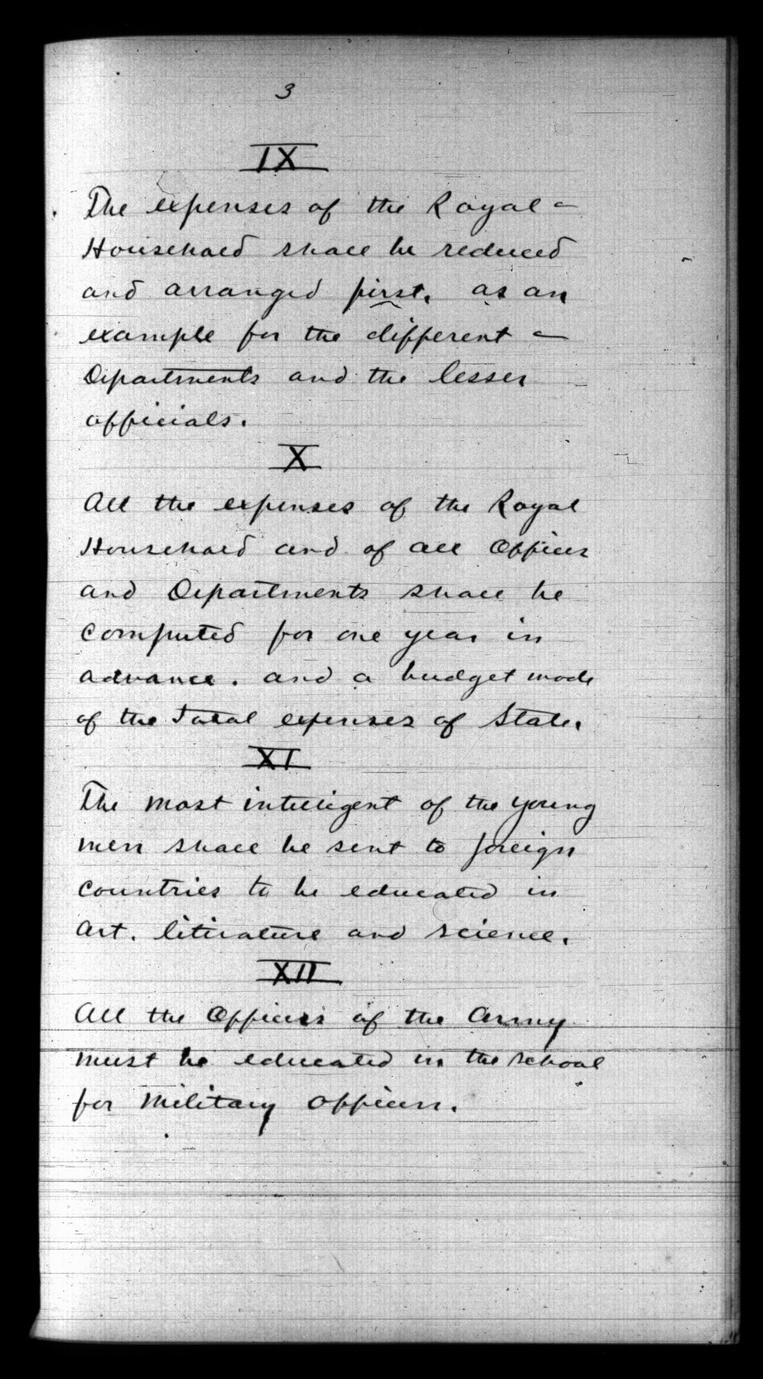 3
IX
The expenses of the Royal -
Household shall be reduced
and arranged first, as an
example for the different -
Departments and the lesser
officials.
X
All the expenses of the Royal
Household and of all Offices
and Departments shall be
computed for one year in
advance. and a budget made
of the Total expenses of State.
XI
The most intelligent of the young
men shall be sent to foreign
countries to be educated in
Art. literature and science.
XII
All the Officers of the Army
must be educated in the school
for Military Officers.